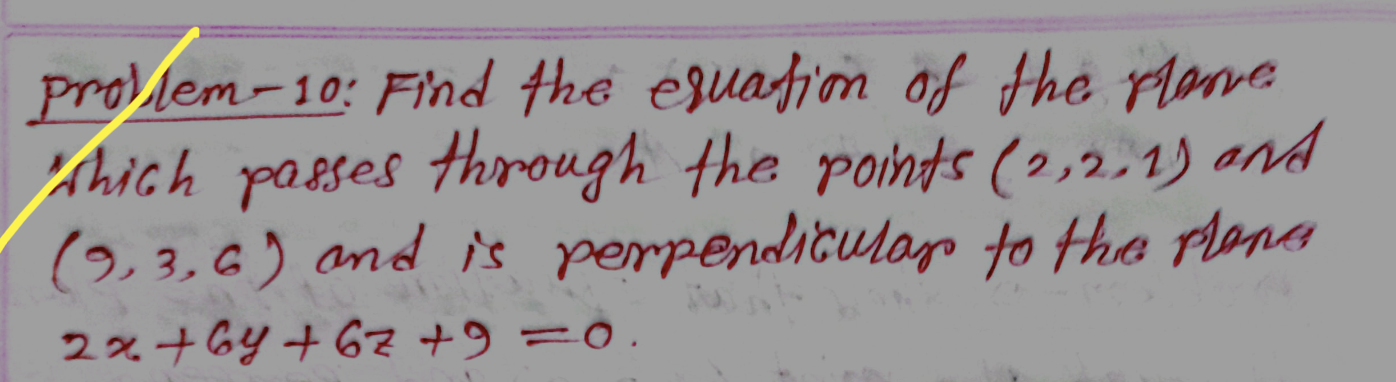 Problem-10: Find the equation of the plane
which passes through the points (2,2,1) and
(9,3,6) and is perpendicular to the plane
2x+6y+6z+9=0.